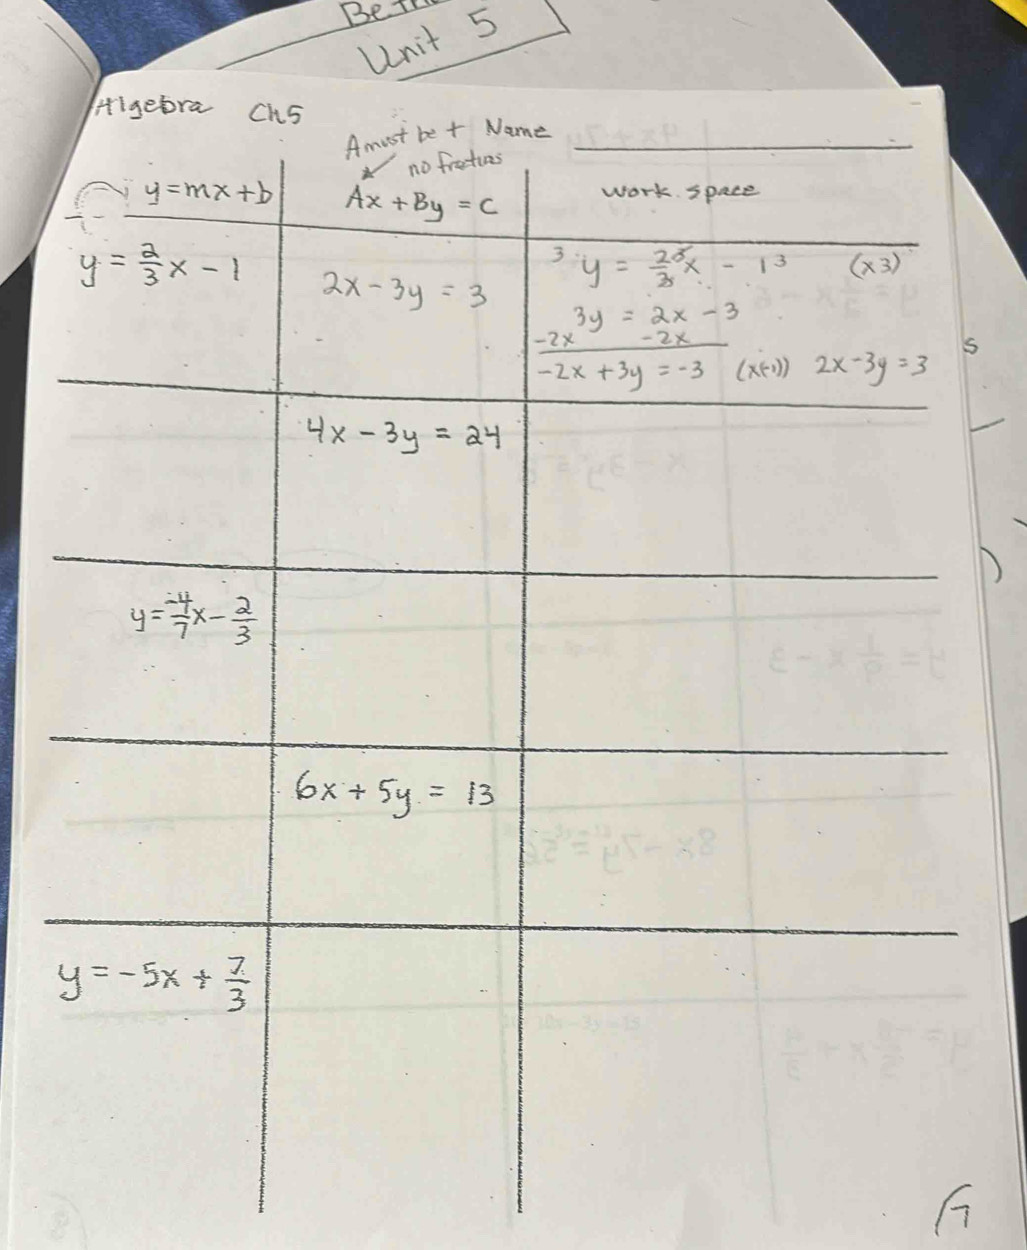 Be
Unit 5
Algebra Ch5
A must be + Name
no fractions
y = mx + b
Ax + By = C
work space
y = 2/3 x - 1
2x - 3y = 3
3 y = 2/3 3 x - 1 3 (x3)
3y = 2x - 3
-2x -2x
-2x + 3y = -3 (x(-1)) 2x - 3y = 3
s
4x - 3y = 24
y = -4/7 x - 2/3
6x + 5y = 13
y = -5x + 7/3
7